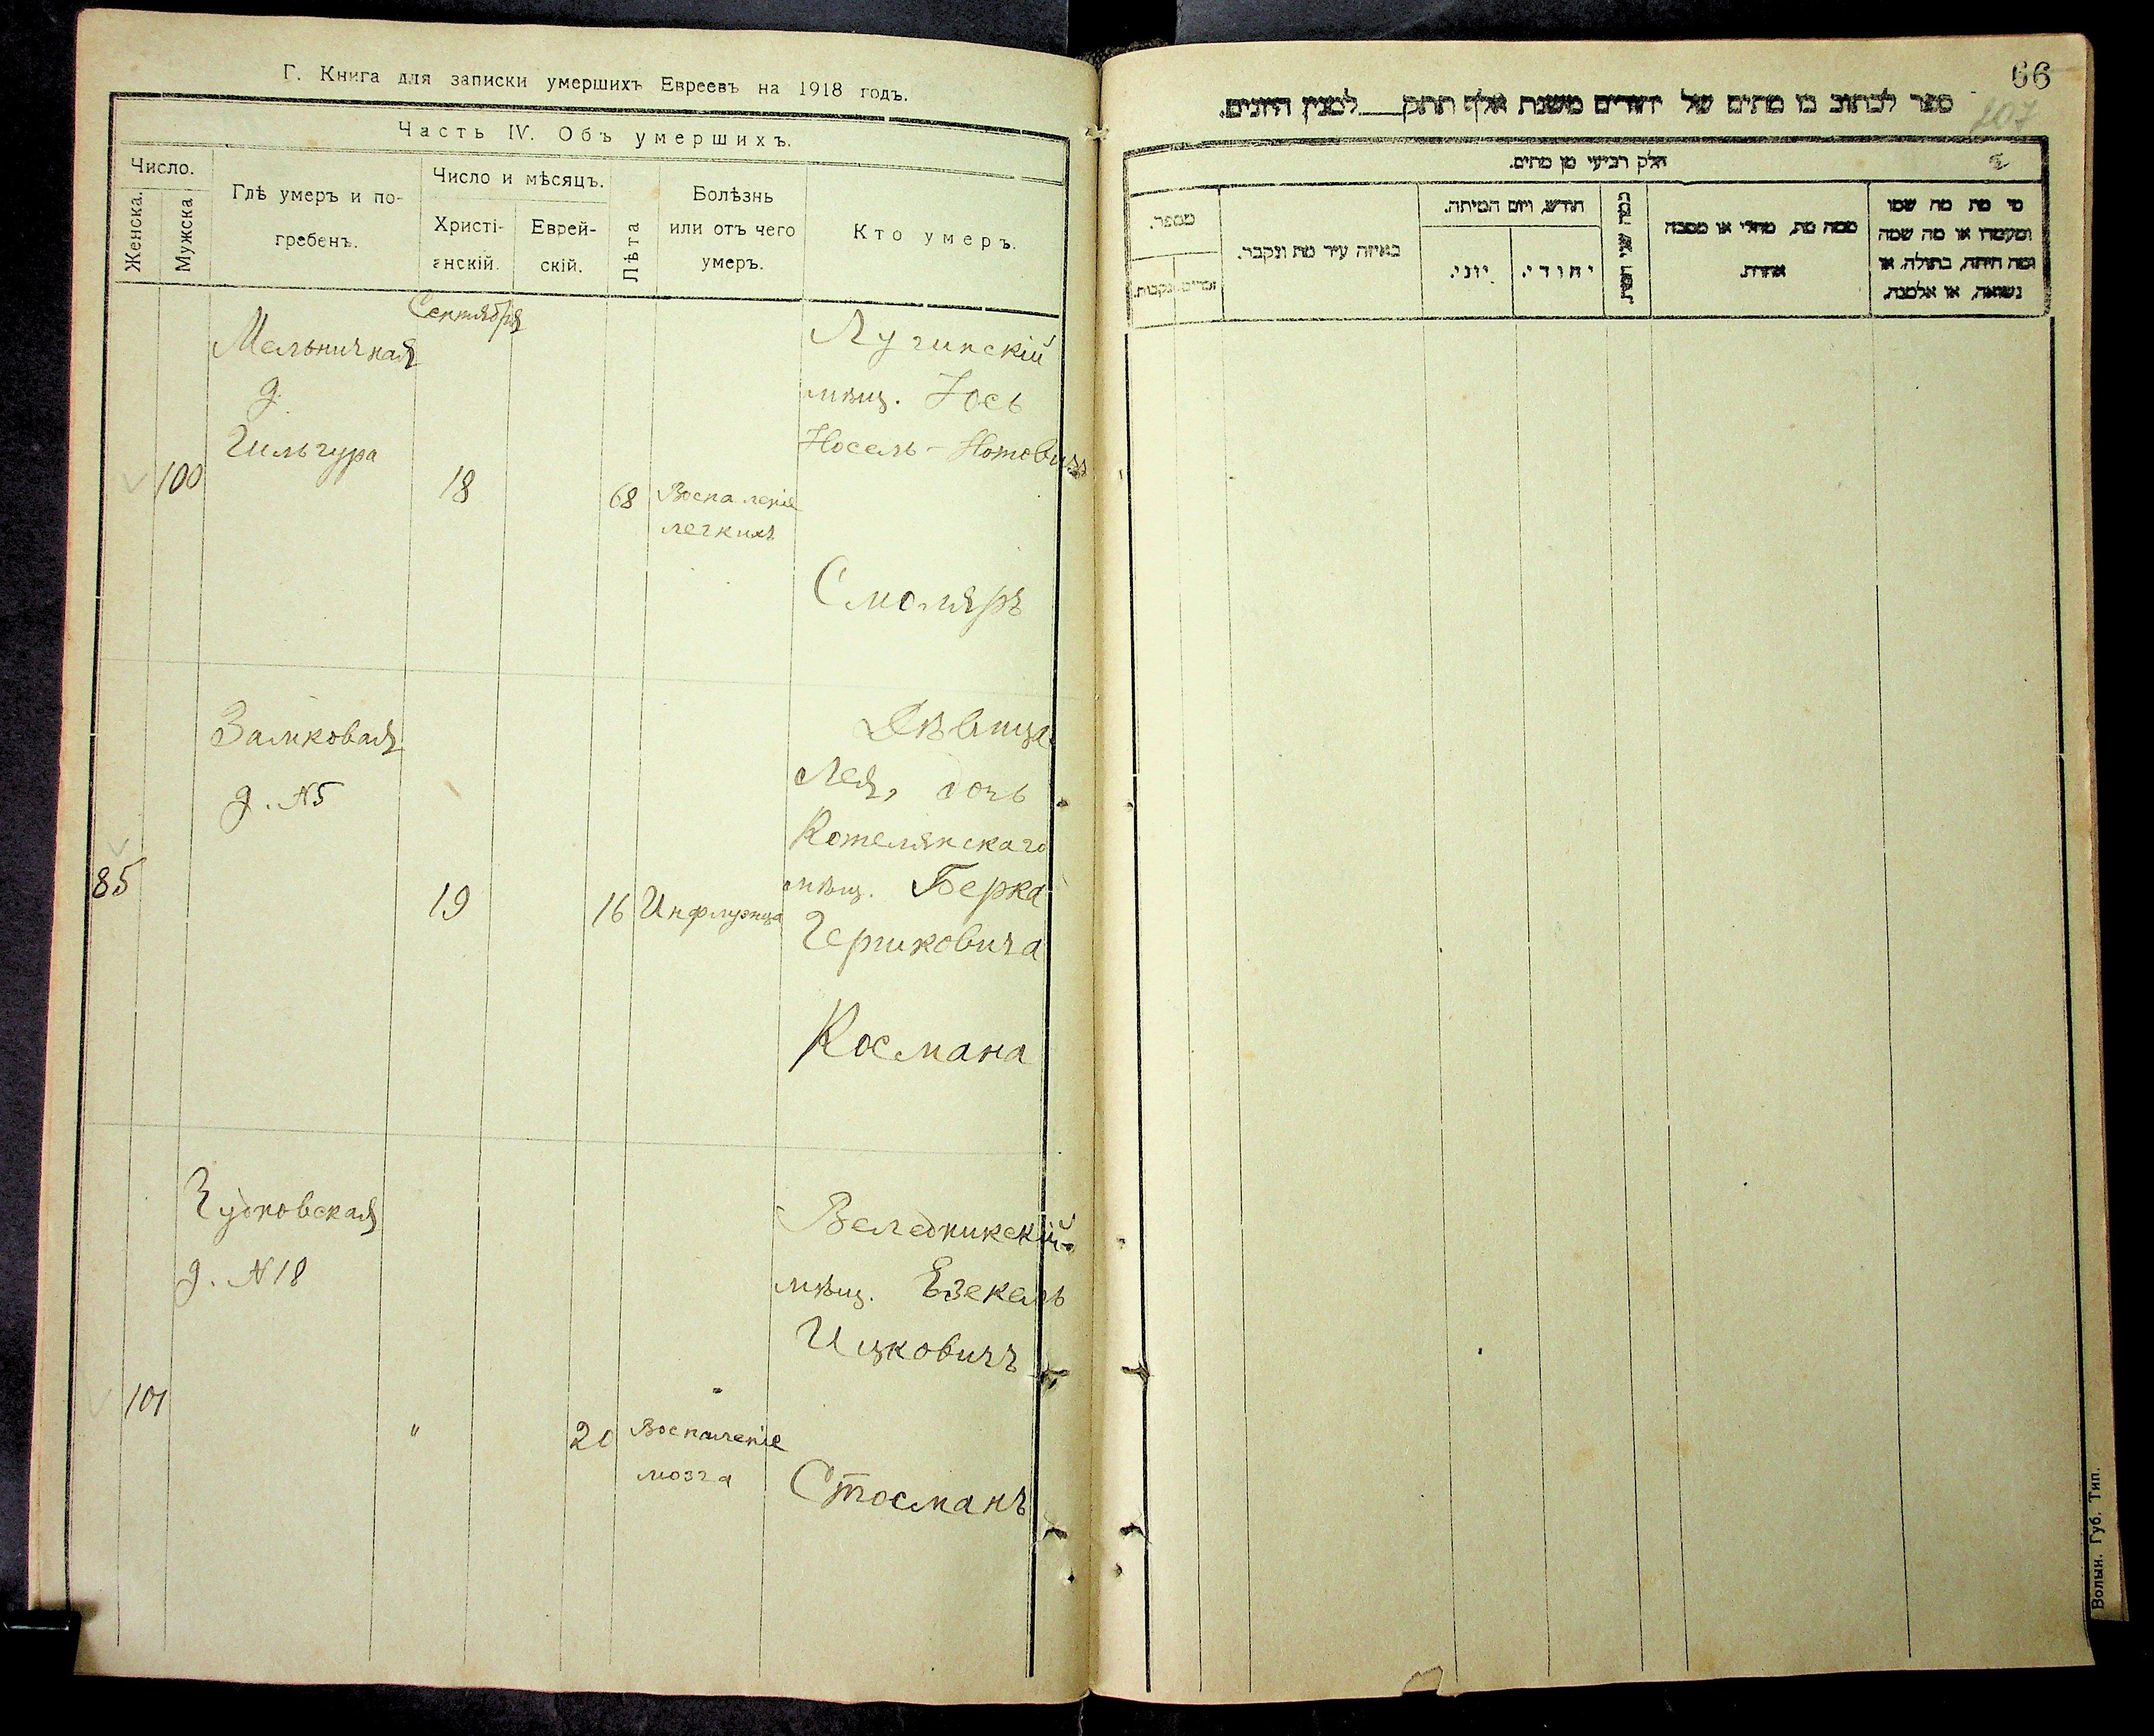 Г. Книга для записки умершихъ Евреевъ на 1918 годъ.
Часть IV. Объ умершихъ.
Число.
Женска.
Мужска
Гдѣ умеръ и по-
гребенъ.
Число и мѣсяцъ.
Христі-
анскій.
Еврей-
скій.
Лѣта
Болѣзнь
или отъ чего
умеръ.
Кто умеръ.
Сентября
Мельничная
д.
Гильгура
100
18
68
Воспаленіе
легкихъ
Лугинскій
мѣщ. Іось
Носель-Нотовичъ
Смоляръ
Замковая
д. №5
85
19
16
Инфлуэнца
Дѣвица
Лея, дочь
Котелянскаго
мѣщ. Берка
Гершковича
Космана
Чудновская
д. №18
101
"
20
Воспаленіе
мозга
Веледникскій
мѣщ. Езекель
Ицковичъ
Стосманъ
66
107
ספר לכתוב בו מתים של יהודים משנת אלף תתק___למנין היונים.
חלק רביעי מן מתים.
מספר.
זכרים.
נקבות.
באיזה עיר מת ונקבר.
חודש, ויום המיתה.
יוני.
יהודי.
כמה שני חיות.
ממה מת, מחלי או מסבה
אחרת.
מי מת מה שמו
ומעמדו או מה שמה
ומה היתה, בתולה, או
נשואה, או אלמנה.
Волын. Губ. Тип.